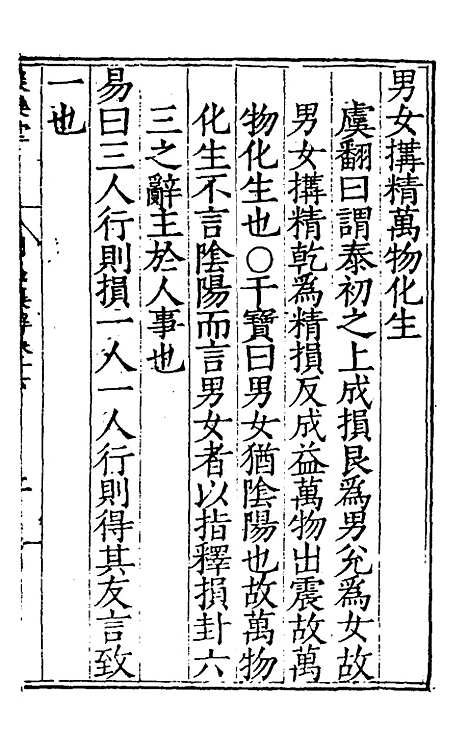 男女搆精萬物化生
虞翻曰謂泰初之上成損艮爲男兊爲女故
男女搆精乾爲精損反成益萬物出震故萬
物化生也○干寶曰男女猶陰陽也故萬物
化生不言陰陽而言男女者以指釋損卦六
三之辭主於人事也
易曰三人行則損一人一人行則得其友言致
一也